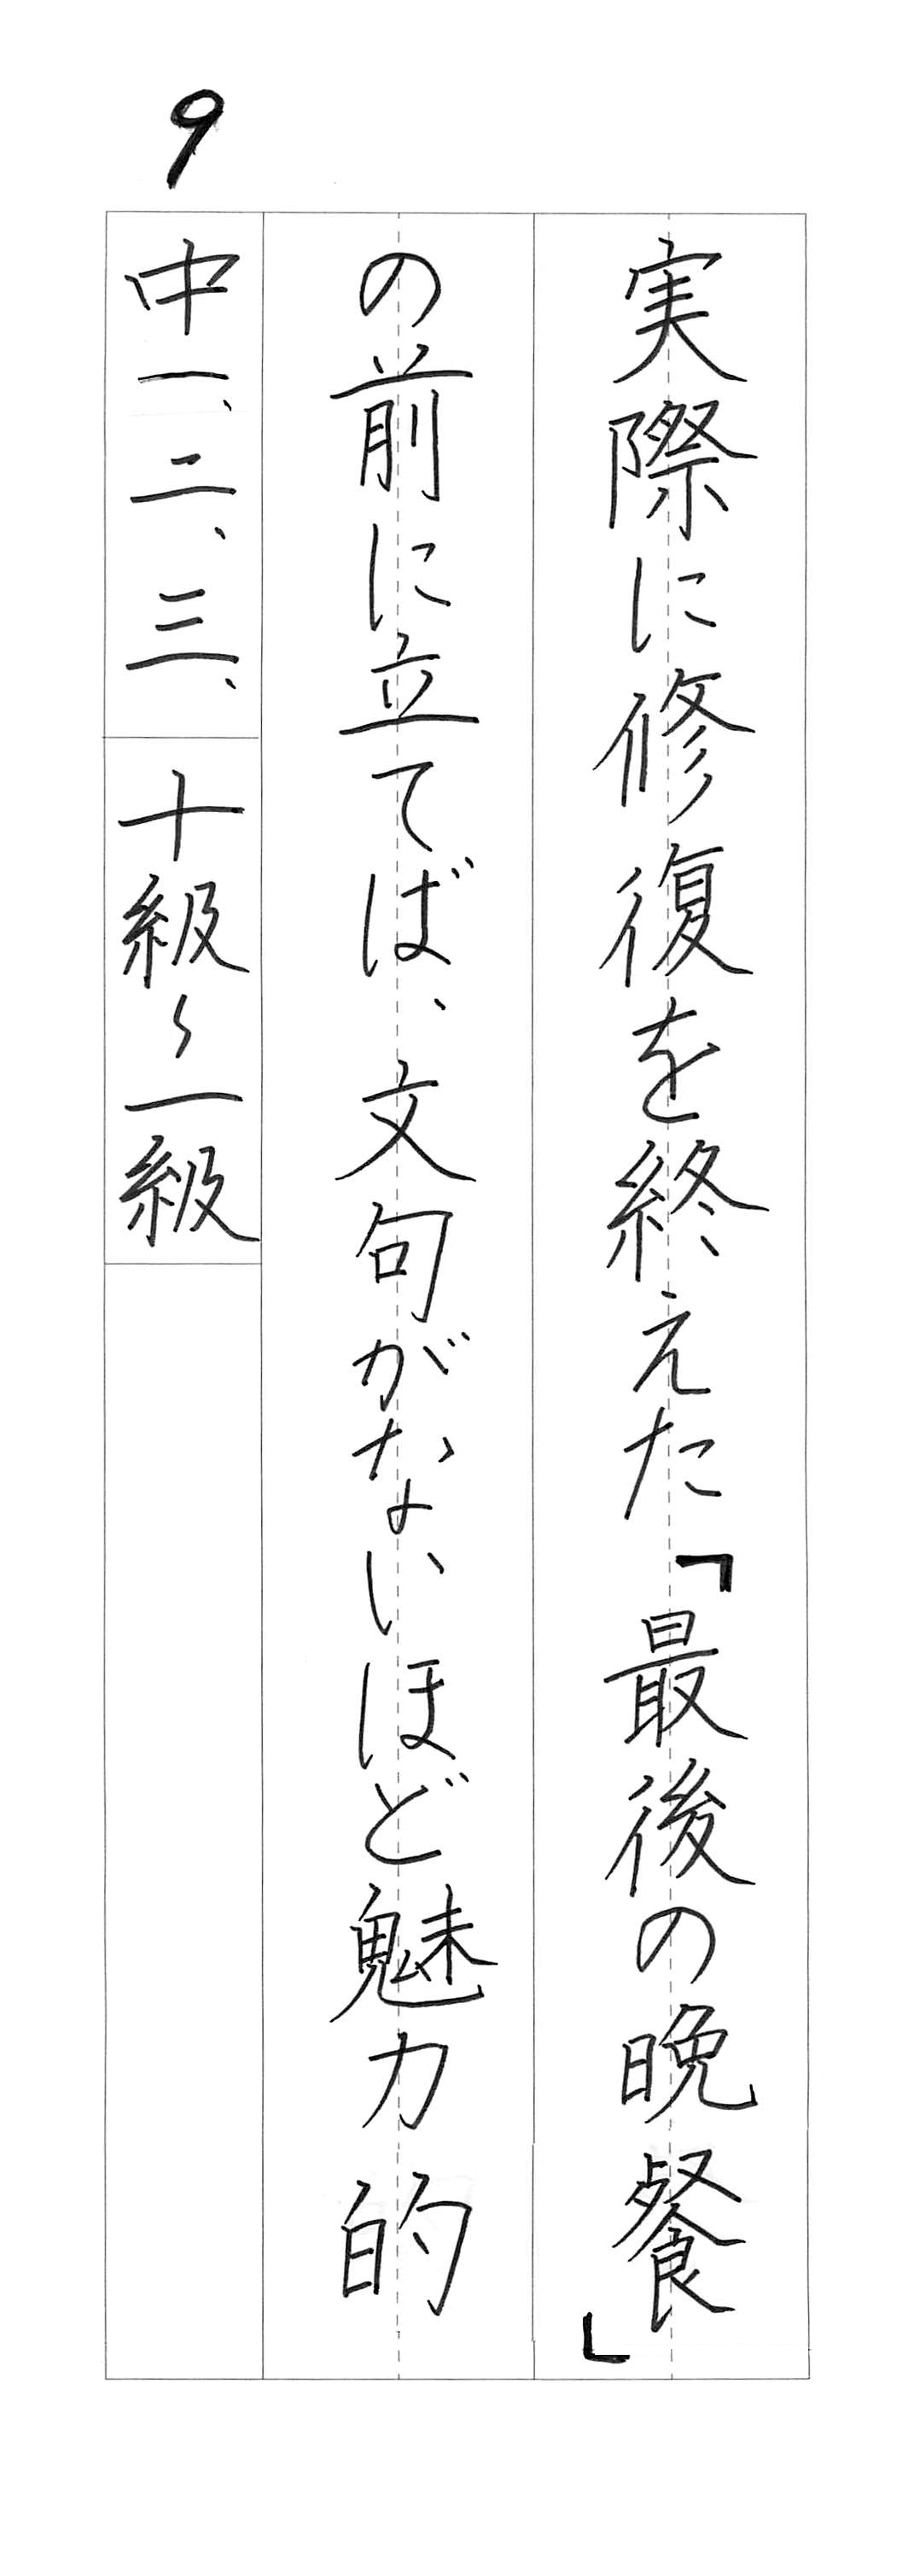 9
実際に修復を終えた「最後の晩餐」
の前に立てば、文句がないほど魅力的
中一、二、三、
十級〜一級